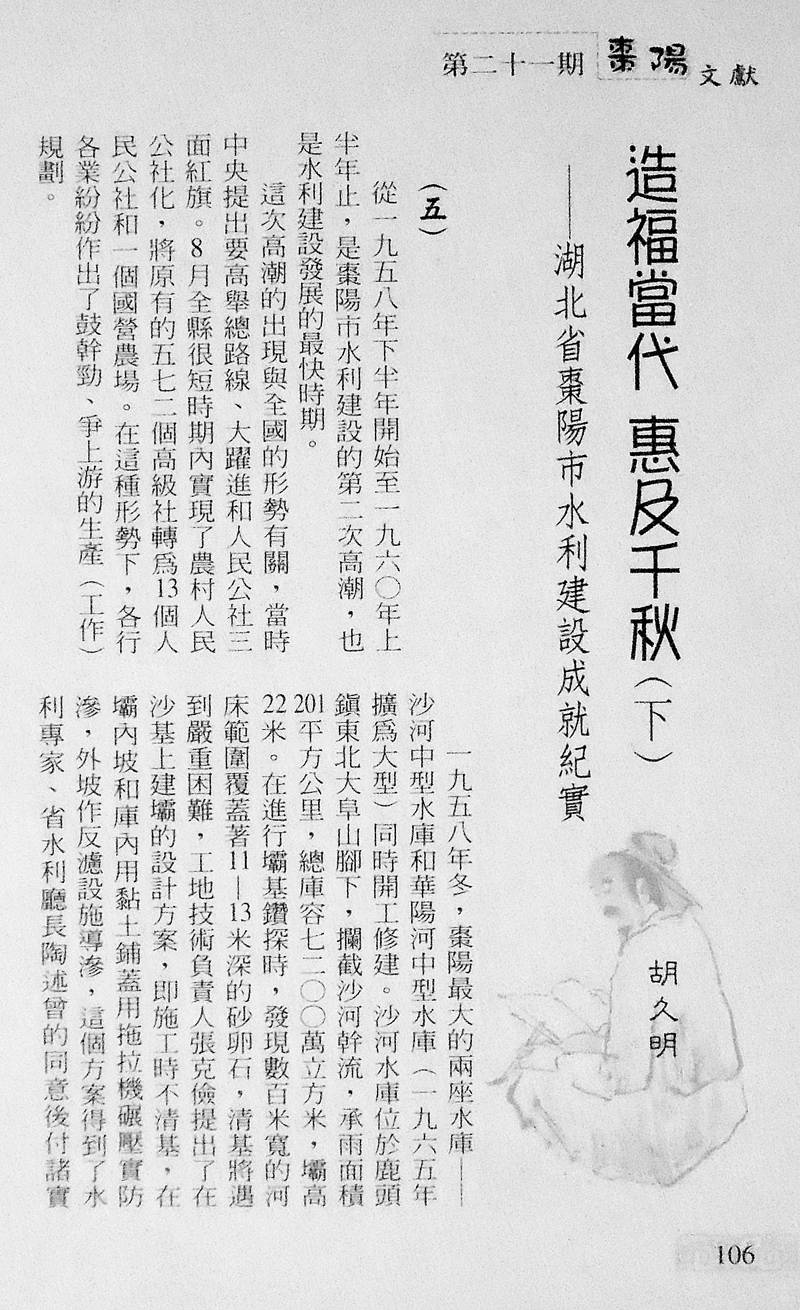 第二十一期 棗陽文獻
造福當代 惠及千秋(下)
——湖北省棗陽市水利建設成就紀實
胡久明
(五)
從一九五八年下半年開始至一九六〇年上
半年止，是棗陽市水利建設的第二次高潮，也
是水利建設發展的最快時期。
這次高潮的出現與全國的形勢有關，當時
中央提出要高舉總路線、大躍進和人民公社三
面紅旗。8月全縣很短時期內實現了農村人民
公社化，將原有的五七二個高級社轉爲13個人
民公社和一個國營農場。在這種形勢下，各行
各業紛紛作出了鼓幹勁、爭上游的生產（工作）
規劃。
一九五八年冬，棗陽最大的兩座水庫——
沙河中型水庫和華陽河中型水庫（一九六五年
擴爲大型）同時開工修建。沙河水庫位於鹿頭
鎮東北大阜山腳下，攔截沙河幹流，承雨面積
201平方公里，總庫容七二〇〇萬立方米，壩高
22米。在進行壩基鑽探時，發現數百米寬的河
床範圍覆蓋著11—13米深的砂卵石，清基將遇
到嚴重困難，工地技術負責人張克儉提出了在
沙基上建壩的設計方案，即施工時不清基，在
壩內坡和庫內用黏土鋪蓋用拖拉機碾壓實防
滲，外坡作反濾設施導滲，這個方案得到了水
利專家、省水利廳長陶述曾的同意後付諸實
106